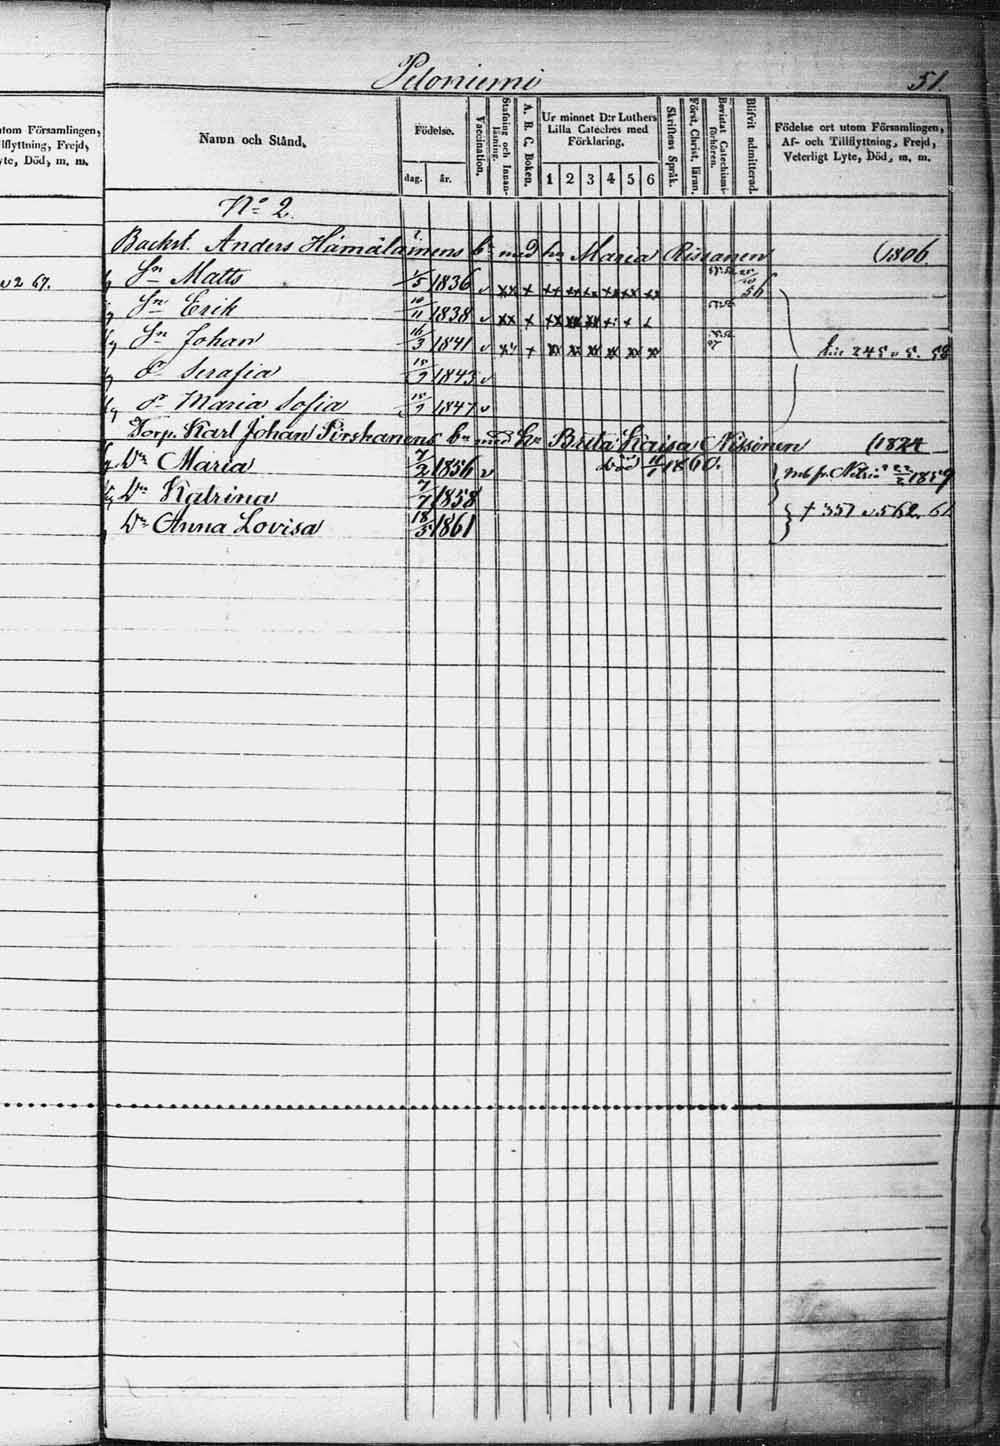 Peloniemi 51.
utom Församlingen,
Tillflyttning, Frejd,
Lyte, Död, m. m.
Namn och Stånd.
Födelse.
dag. år.
Vaccination.
Stafning och Innanläsning.
A. B. C. Boken.
Ur minnet D:r Luthers Lilla Cateches med Förklaring.
1 2 3 4 5 6
Skriftens Språk.
Först. Christ. läran.
Bevistat Catechismiförhören.
Blifvit admitterad.
Födelse ort utom Församlingen,
Af- och Tillflyttning, Frejd,
Veterligt Lyte, Död, m. m.
No 2.
Backst. Anders Hämäläinens bn med hu Maria Rissanen (1806.
Sn Matts 1/5 1836 v 56
Sn Erik 10/11 1838 v
Sn Johan 16/3 1841 v
dr Serafia 15/9 1843 v
dr Maria Sofia 15/7 1847 v
Torp. Karl Johan Pirskanens bn med hu Brita Kaisa Nissinen (1824
Dr Maria 7/2 1856 v död 1860.
Dr Katrina 7/7 1858
Dr Anna Lovisa 18/5 1861